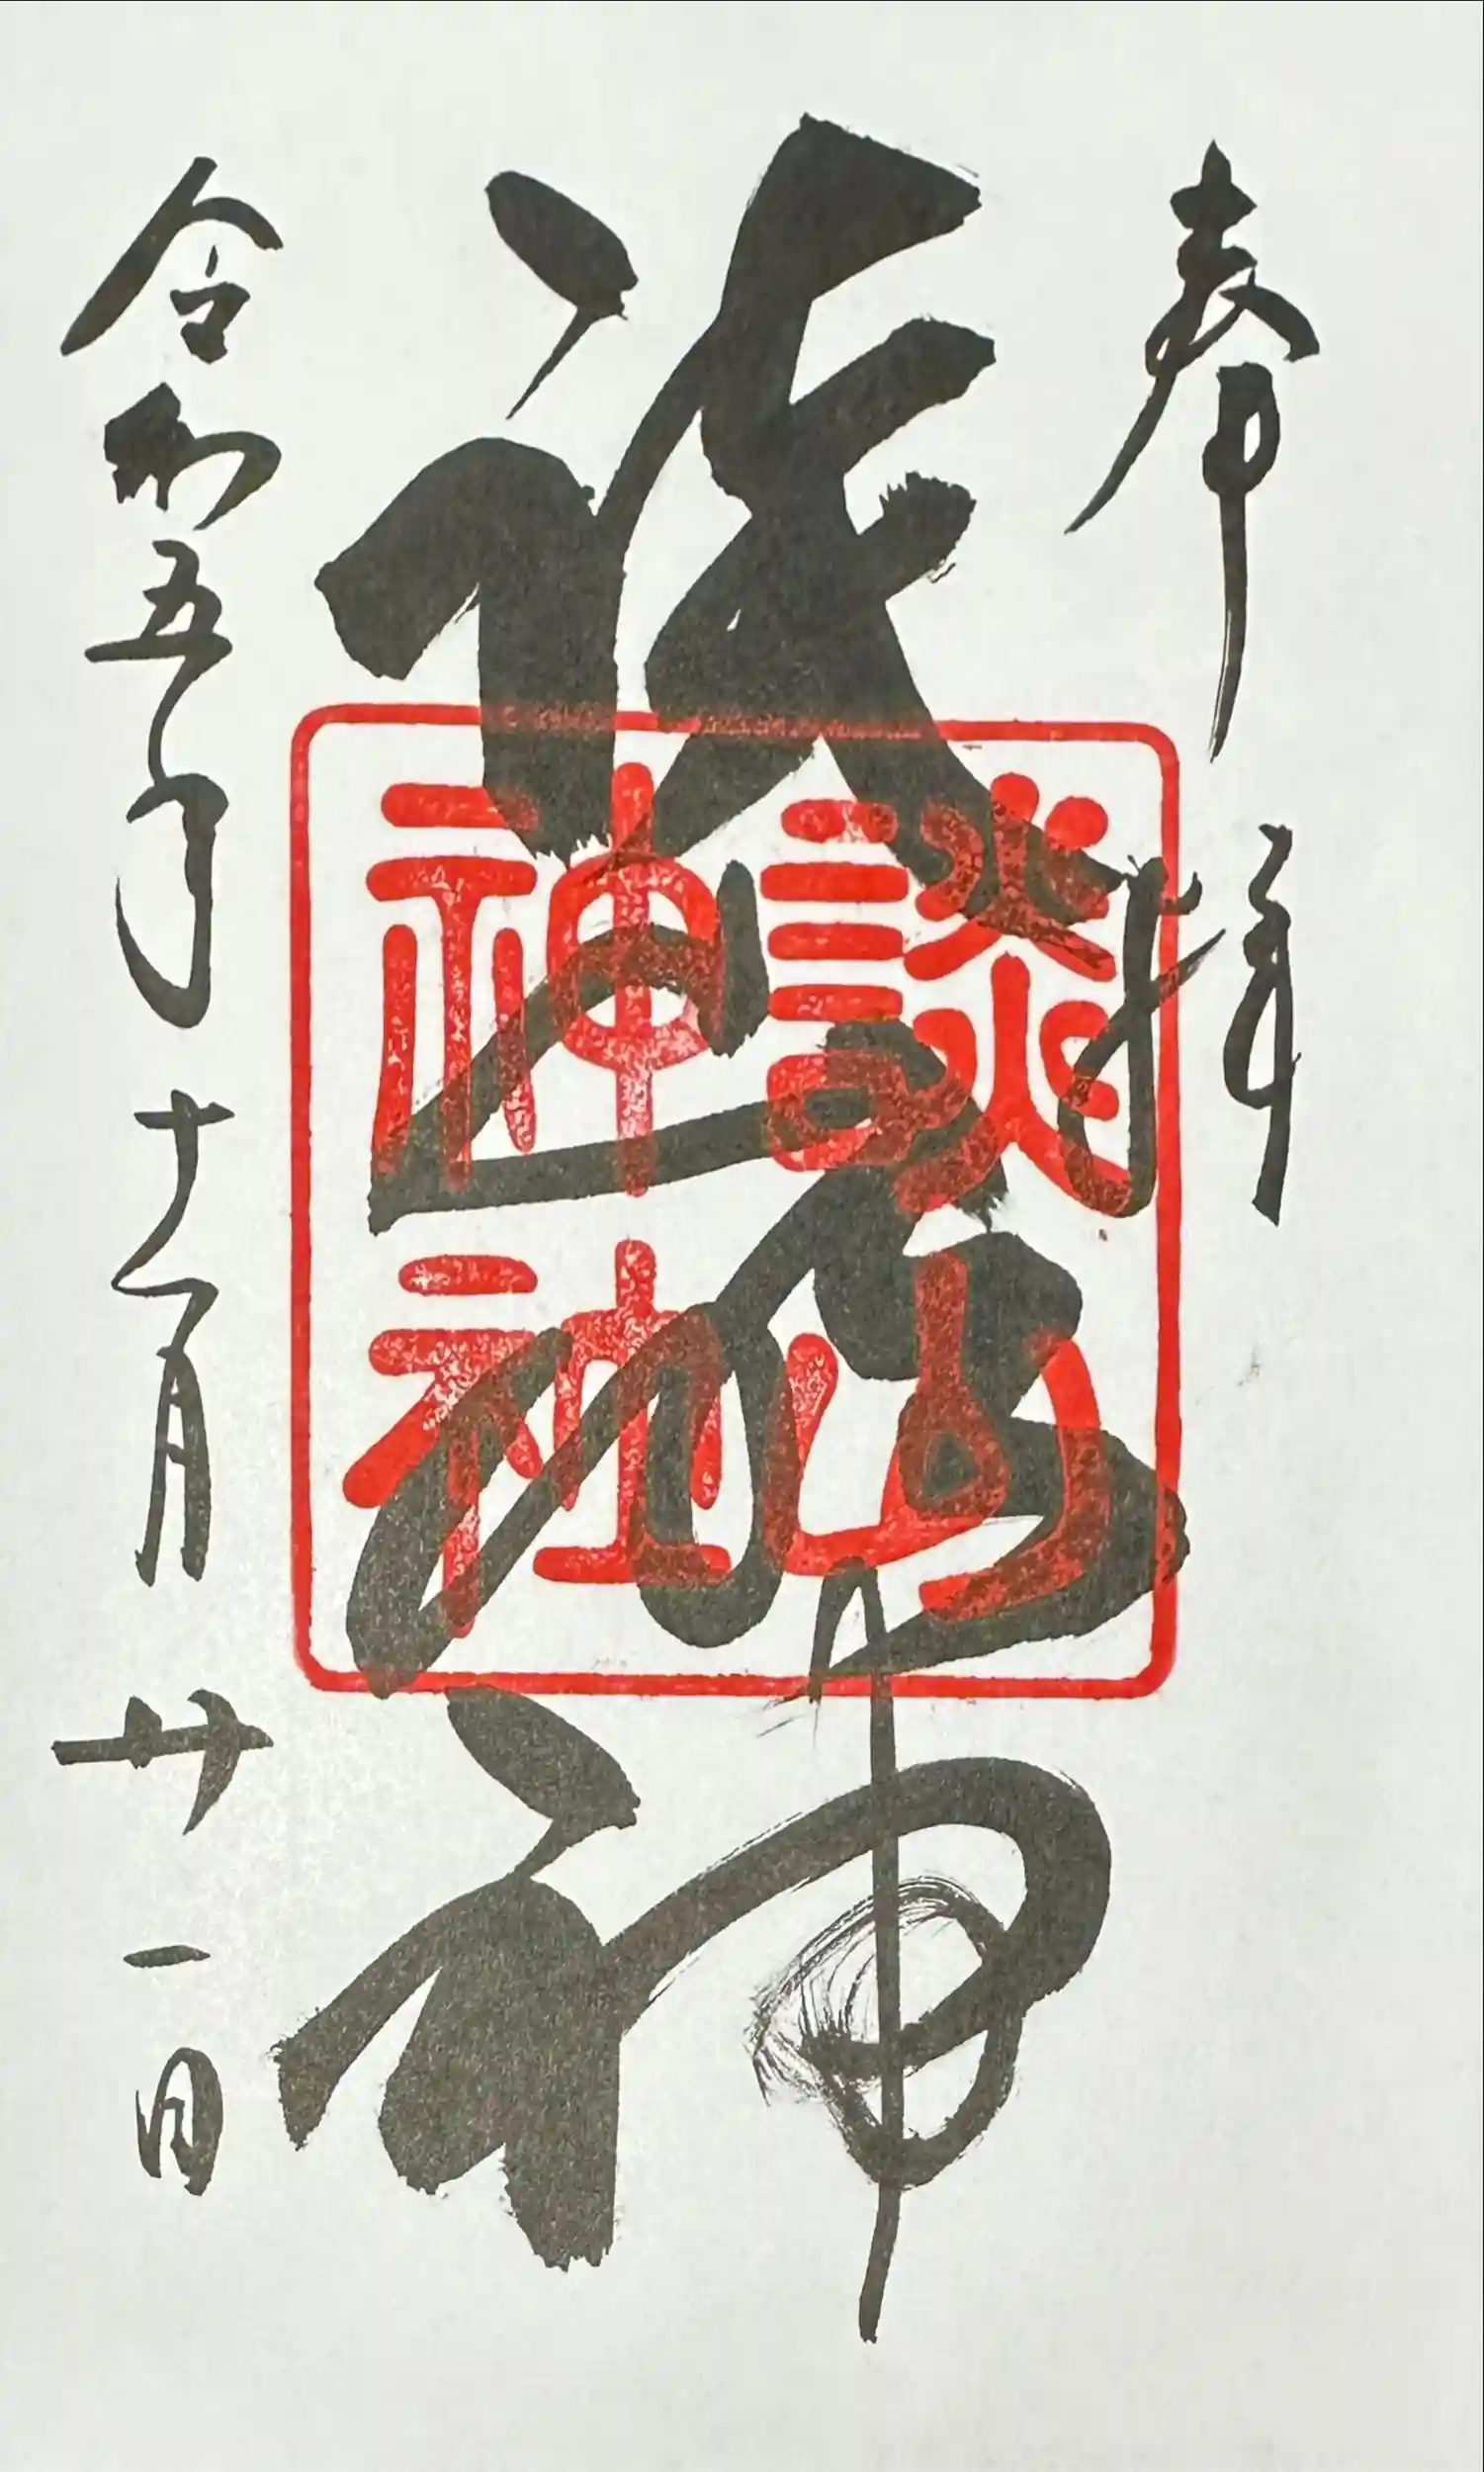 奉拝
神
談山神社
令和五年十一月廿一日